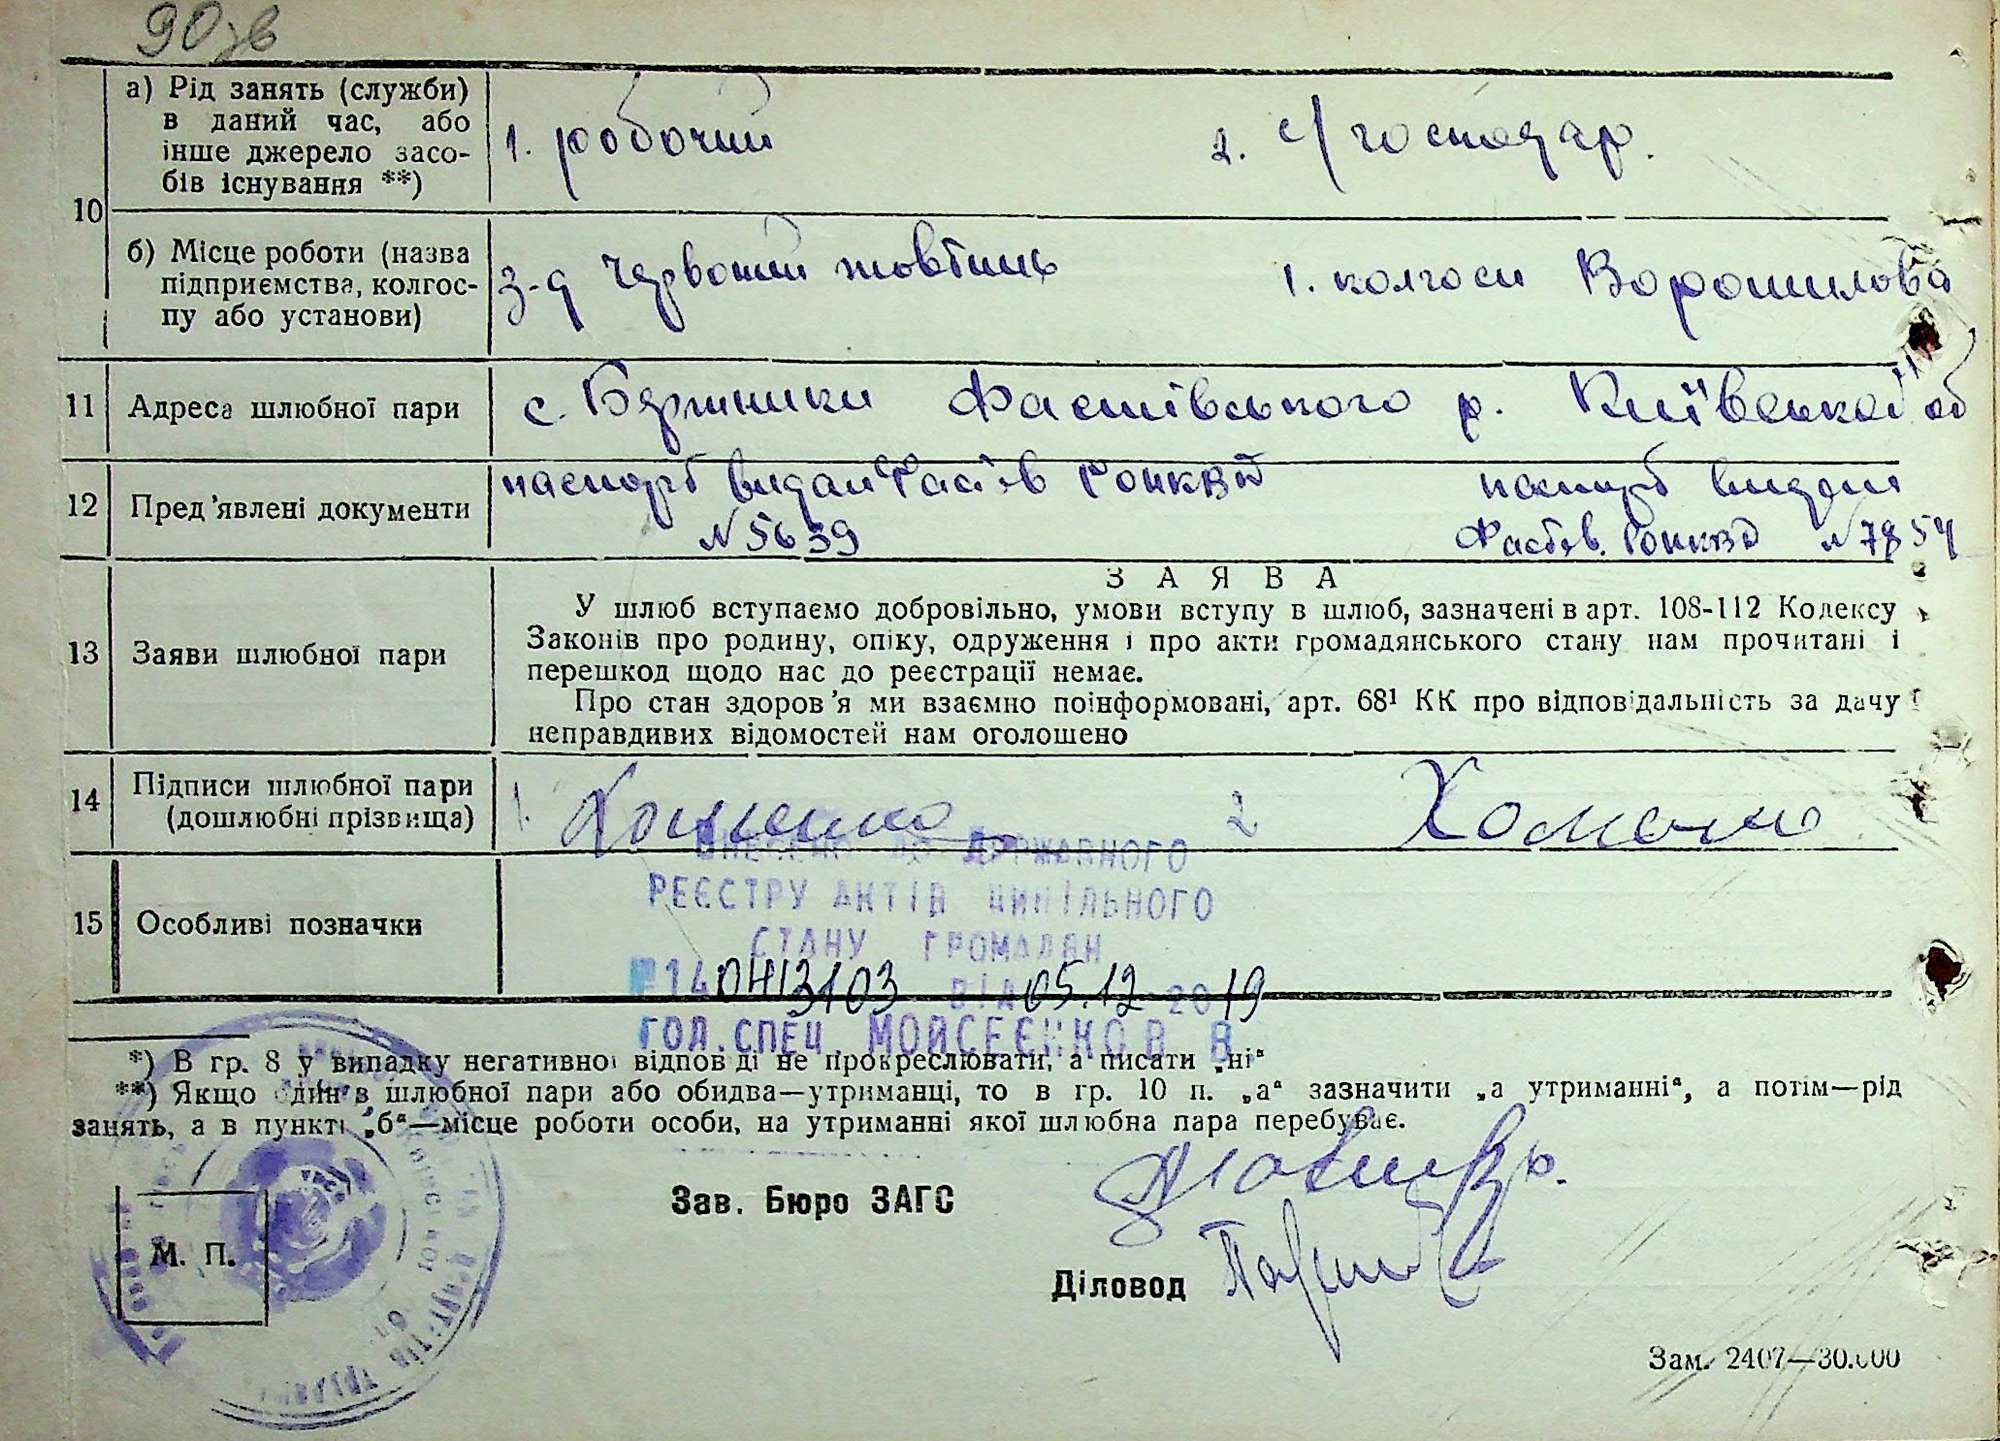 90зв
10
а) Рід занять (служби)
в даний час, або
інше джерело засо-
бів існування **)
1. робочий
2. с/господар.
б) Місце роботи (назва
підприємства, колгос-
пу або установи)
з-д Червоний жовтень
1. колгосп Ворошилова
11 Адреса шлюбної пари
с. Фастівського р. Київської об
12 Пред'явлені документи
паспорт видан Фастів РОНКВД
№ 5639
паспорт видан
Фастів. РОНКВД № 7854
13 Заяви шлюбної пари
ЗАЯВА
У шлюб вступаємо добровільно, умови вступу в шлюб, зазначені в арт. 108-112 Кодексу
Законів про родину, опіку, одруження і про акти громадянського стану нам прочитані і
перешкод щодо нас до реєстрації немає.
Про стан здоров'я ми взаємно поінформовані, арт. 68¹ КК про відповідальність за дачу
неправдивих відомостей нам оголошено
14 Підписи шлюбної пари
(дошлюбні прізвища)
1.
2
ВНЕСЕНО ДО ДЕРЖАВНОГО
РЕЄСТРУ АКТІВ ЦИВІЛЬНОГО
СТАНУ ГРОМАДЯН
15 Особливі позначки
ВІД 05.12 2019
ГОЛ.СПЕЦ. МОЙСЕЄНКО В.В.
*) В гр. 8 у випадку негативної відповіді не прокреслювати, а писати „ні“
**) Якщо один з шлюбної пари або обидва—утриманці, то в гр. 10 п. „а“ зазначити „а утриманні“, а потім—рід
занять, а в пункті „б“—місце роботи особи, на утриманні якої шлюбна пара перебуває.
Зав. Бюро ЗАГС
М. П.
Діловод
Зам. 2407—30.000